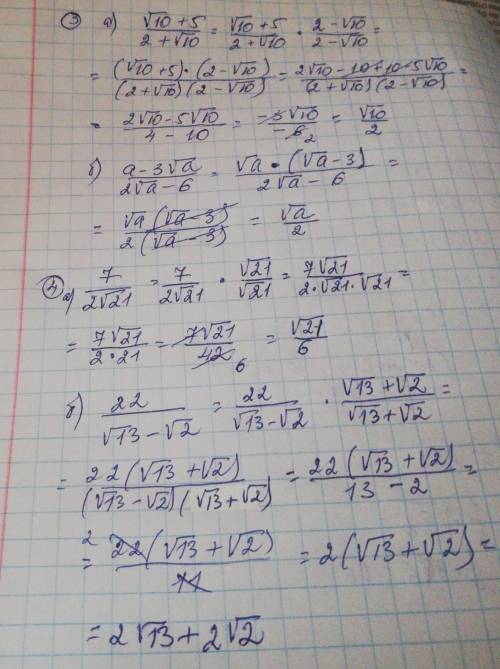 ③ а) (√10 + 5)/(2 + √10) = (√10 + 5)/(2 + √10) · (2 - √10)/(2 - √10) =
= ((√10 + 5) · (2 - √10))/((2 + √10)(2 - √10)) = (2√10 - 10 + 10 - 5√10)/((2 + √10)(2 - √10)) =
= (2√10 - 5√10)/(4 - 10) = (-3√10)/(-6 2) = √10/2
б) (a - 3√a)/(2√a - 6) = (√a · (√a - 3))/(2√a - 6) =
= (√a (√a - 3))/(2 (√a - 3)) = √a/2
④ а) 7/(2√21) = 7/(2√21) · √21/√21 = 7√21/(2 · √21 · √21) =
= 7√21/(2 · 21) = 7√21/(42 6) = √21/6
б) 22/(√13 - √2) = 22/(√13 - √2) · (√13 + √2)/(√13 + √2) =
= (22 (√13 + √2))/((√13 - √2)(√13 + √2)) = (22 (√13 + √2))/(13 - 2) =
= (2 22 (√13 + √2))/11 = 2 (√13 + √2) =
= 2√13 + 2√2